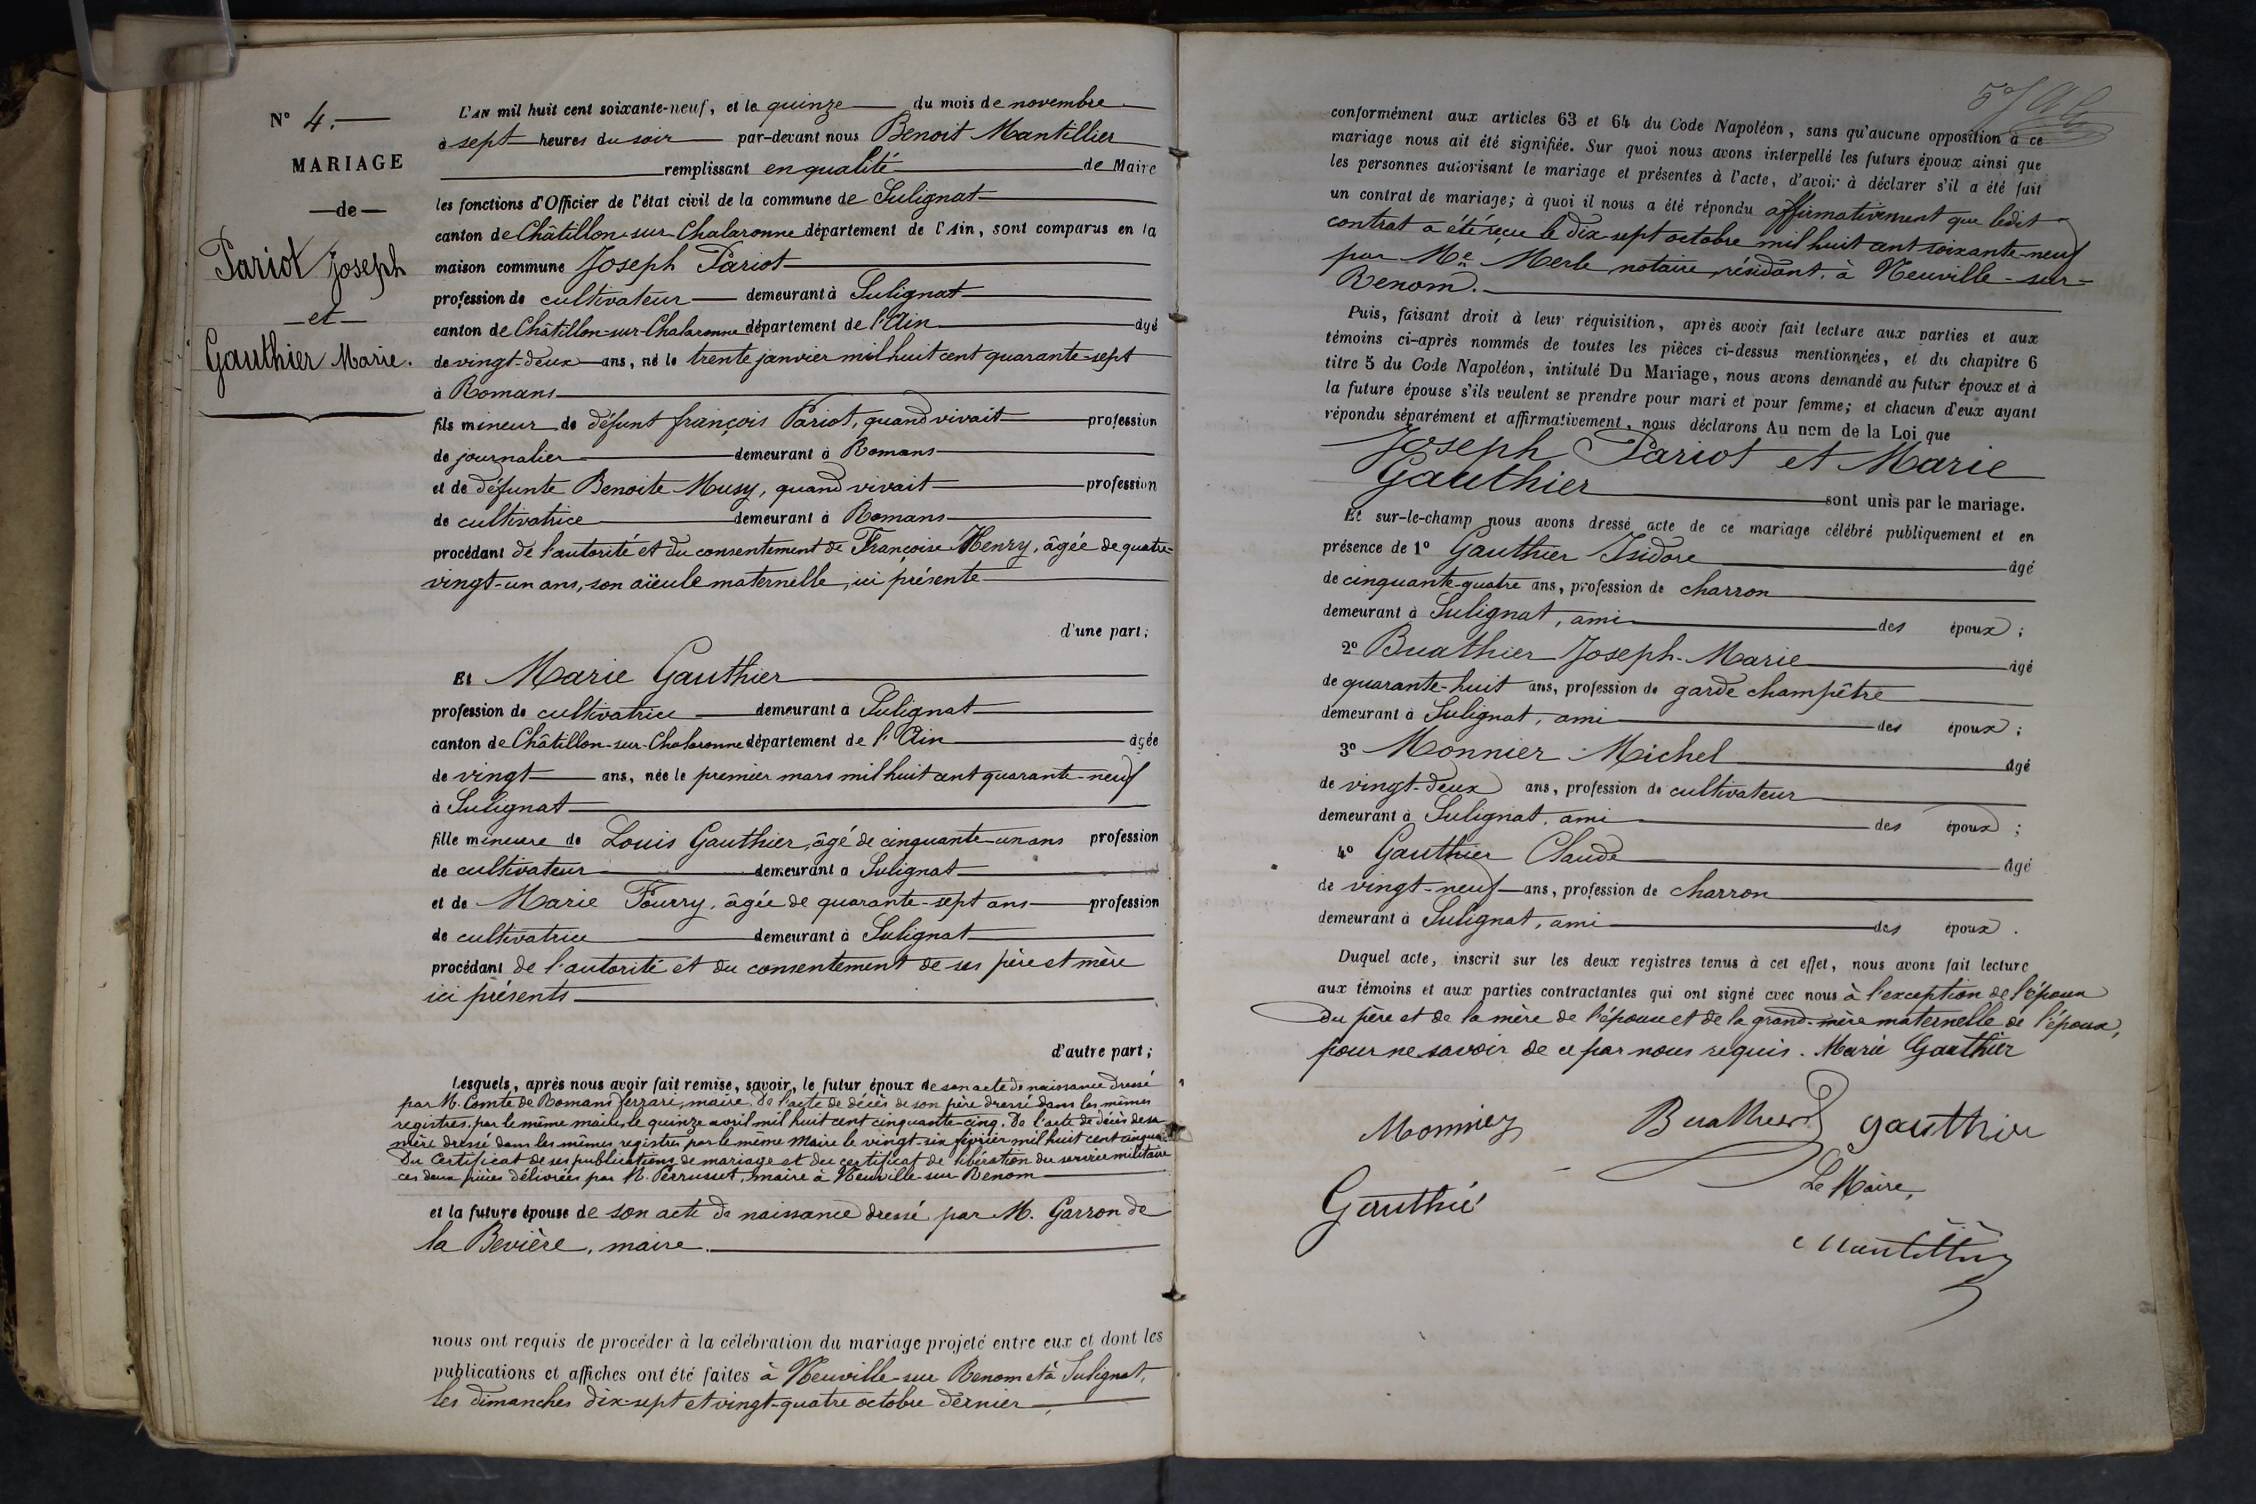 N° 4.
MARIAGE
de
Pariot Joseph
et
Gauthier Marie.
L'AN mil huit cent soixante-neuf, et le quinze du mois de novembre
à sept heures du soir par-devant nous Benoit Mantillier
remplissant en qualité de Maire
les fonctions d'Officier de l'état civil de la commune de Sulignat
canton de Châtillon-sur-Chalaronne département de l'Ain, sont comparus en la
maison commune Joseph Pariot
profession de cultivateur demeurant à Sulignat
canton de Châtillon-sur-Chalaronne département de l'Ain âgé
de vingt-deux ans, né le trente janvier mil huit cent quarante-sept
à Romans
fils mineur de défunt françois Pariot, quand vivait profession
de journalier demeurant à Romans
et de défunte Benoite Musy, quand vivait profession
de cultivatrice demeurant à Romans
procédant de l'autorité et du consentement de Françoise Henry, âgée de quatre-
vingt-un ans, son aïeule maternelle, ici présente
d'une part;
Et Marie Gauthier
profession de cultivatrice demeurant à Sulignat
canton de Châtillon-sur-Chalaronne département de l'Ain âgée
de vingt ans, née le premier mars mil huit cent quarante-neuf
à Sulignat
fille mineure de Louis Gauthier, âgé de cinquante-un ans profession
de cultivateur demeurant à Sulignat
et de Marie Fourry, âgée de quarante-sept ans profession
de cultivatrice demeurant à Sulignat
procédant de l'autorité et du consentement de ses père et mère
ici présents
d'autre part;
Lesquels, après nous avoir fait remise, savoir, le futur époux de son acte de naissance dressé
par M. Comte de Romans ferrari, maire. De l'acte de décès de son père dressé dans les mêmes
registres, par le même maire, le quinze avril mil huit cent cinquante-cinq. De l'acte de décès de sa
mère dressé dans les mêmes registres par le même Maire le vingt-six février mil huit cent
Du Certificat de ses publications de mariage et du certificat de libération du service militaire
ces deux pièces délivrées par M. Perrusset, maire à Neuville-sur-Renom
et la future épouse de son acte de naissance dressé par M. Garron de
la Bevière, maire.
nous ont requis de procéder à la célébration du mariage projeté entre eux et dont les
publications et affiches ont été faites à Neuville-sur Renom et à Sulignat,
les dimanches dix-sept et vingt-quatre octobre dernier,
conformément aux articles 63 et 64 du Code Napoléon, sans qu'aucune opposition à ce
mariage nous ait été signifiée. Sur quoi nous avons interpellé les futurs époux ainsi que
les personnes autorisant le mariage et présentes à l'acte, d'avoir à déclarer s'il a été fait
un contrat de mariage; à quoi il nous a été répondu affirmativement que ledit
contrat a été reçu le dix-sept octobre mil huit cent soixante-neuf
par Me Merle notaire résidant à Neuville-sur-
Renom.
Puis, faisant droit à leur réquisition, après avoir fait lecture aux parties et aux
témoins ci-après nommés de toutes les pièces ci-dessus mentionnées, et du chapitre 6
titre 5 du Code Napoléon, intitulé Du Mariage, nous avons demandé au futur époux et à
la future épouse s'ils veulent se prendre pour mari et pour femme; et chacun d'eux ayant
répondu séparément et affirmativement, nous déclarons Au nom de la Loi que
Joseph Pariot et Marie
Gauthier sont unis par le mariage.
Et sur-le-champ nous avons dressé acte de ce mariage célébré publiquement et en
présence de 1° Gauthier Isidore âgé
de cinquante-quatre ans, profession de charron
demeurant à Sulignat, ami des époux;
2° Buathier Joseph-Marie âgé
de quarante-huit ans, profession de garde champêtre
demeurant à Sulignat, ami des époux;
3° Monnier Michel âgé
de vingt-deux ans, profession de cultivateur
demeurant à Sulignat, ami des époux;
4° Gauthier Claude âgé
de vingt-neuf ans, profession de charron
demeurant à Sulignat, ami des époux.
Duquel acte, inscrit sur les deux registres tenus à cet effet, nous avons fait lecture
aux témoins et aux parties contractantes qui ont signé avec nous à l'exception de l'époux
du père et de la mère de l'épouse et de la grand-mère maternelle de l'époux,
pour ne savoir de ce par nous requis. Marie Gauthier
Monnier Buathier gauthier
Gauthié Le Maire,
Mantillier